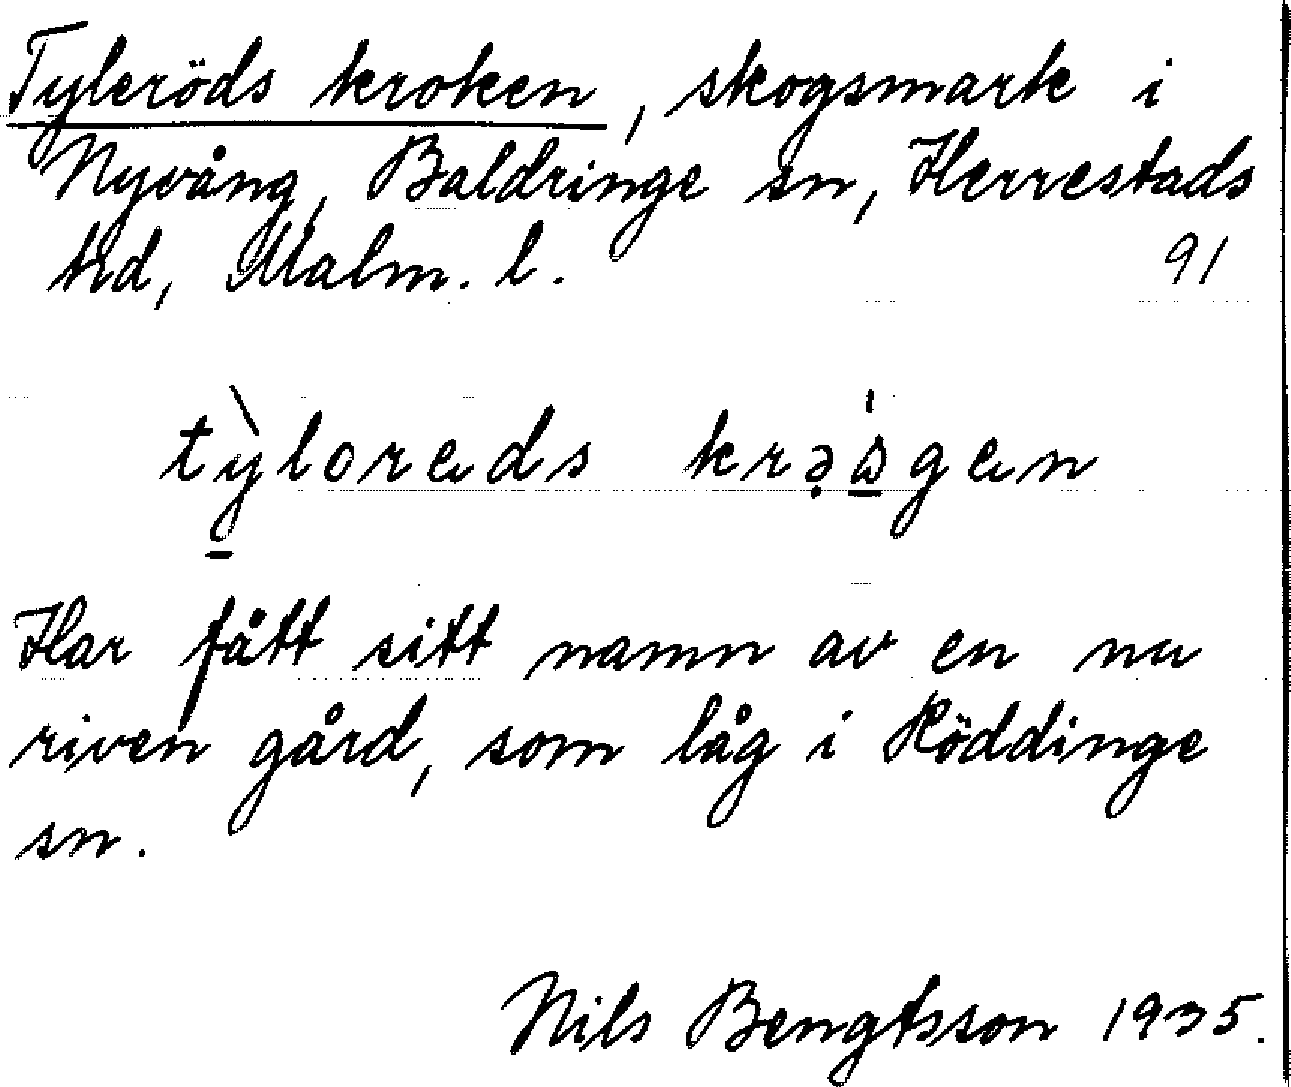 Tyleröds kroken, skogsmark i
Nyvång, Baldringe sn, Herrestads
hd, Malm. l. 91
tỳloreds krə̣ágen
Har fått sitt namn av en nu
riven gård, som låg i Röddinge
sn.
Nils Bengtsson 1935.